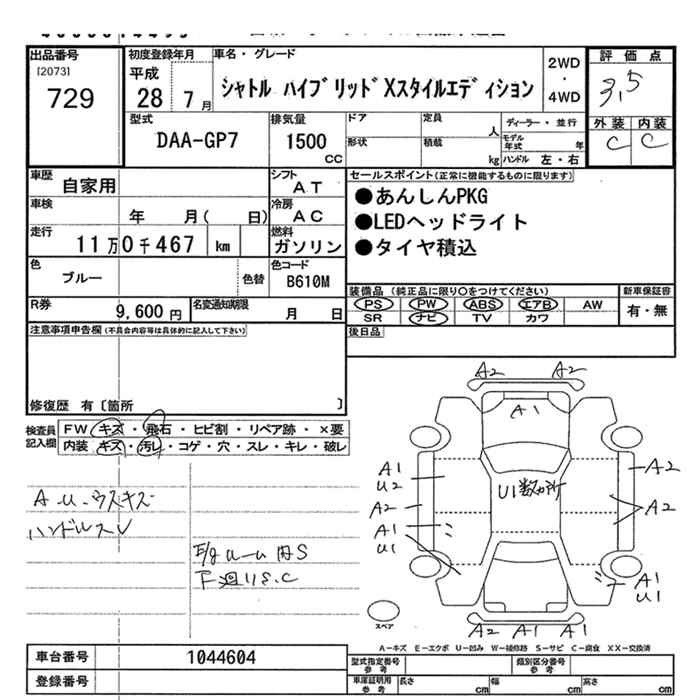 出品番号
[2073]
729
初度登録年月
平成
28 7 月
車名・グレード
シャトル ハイブリッド Xスタイルエディション
2WD
・
4WD
評価点
3.5
外装 内装
C C
型式
DAA-GP7
排気量
1500
CC
ドア
定員
人
ディーラー・並行
形状
積載
kg
モデル年式
年
ハンドル 左・右
車歴
自家用
シフト
AT
車検
年 月( 日)
冷房
AC
走行
11万0千467 km
燃料
ガソリン
色
ブルー
色替
色コード
B610M
R券
9,600 円
名変通知期限
月 日
セールスポイント(正常に機能するものに限ります)
●あんしんPKG
●LEDヘッドライト
●タイヤ積込
装備品 (純正品に限り○をつけてください)
PS PW ABS エアB AW
SR ナビ TV カワ
新車保証書
有・無
後日品
注意事項申告欄(不具合内容等は具体的に記入して下さい)
修復歴 有〔箇所 〕
検査員記入欄
FW キズ・飛石・ヒビ割・リペア跡・×要
内装 キズ・汚レ・コゲ・穴・スレ・キレ・破レ
A.U.ウスキズ
ハンドルスレ
下廻りS.C
A2 A2
A1
A1
U2
A2
A1
U1
U1数か所
A2
A2
A1
U1
A2 A1 A1
スペア
A-キズ E-エクボ U-凹み W-補修跡 S-サビ C-腐食 XX-交換済
車台番号
1044604
登録番号
型式指定番号
参考
類別区分番号
参考
車庫証明用
参考
長さ
cm
幅
cm
高さ
cm